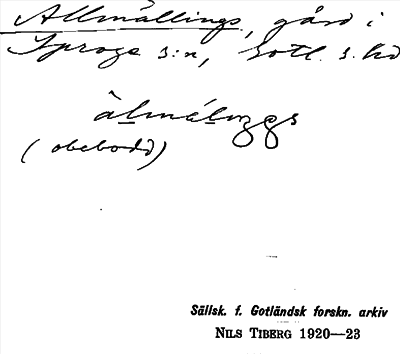 Allmällings, gård i
Sproge s:n, Gotl. s. hd
(obebodd)
Sällsk. f. Gotländsk forskn. arkiv
NILS TIBERG 1920—23